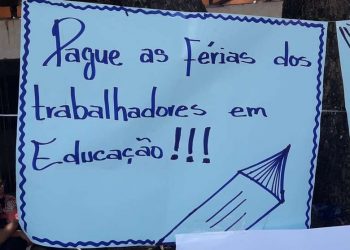 Pague as Férias dos
trabalhadores em
Educação!!!